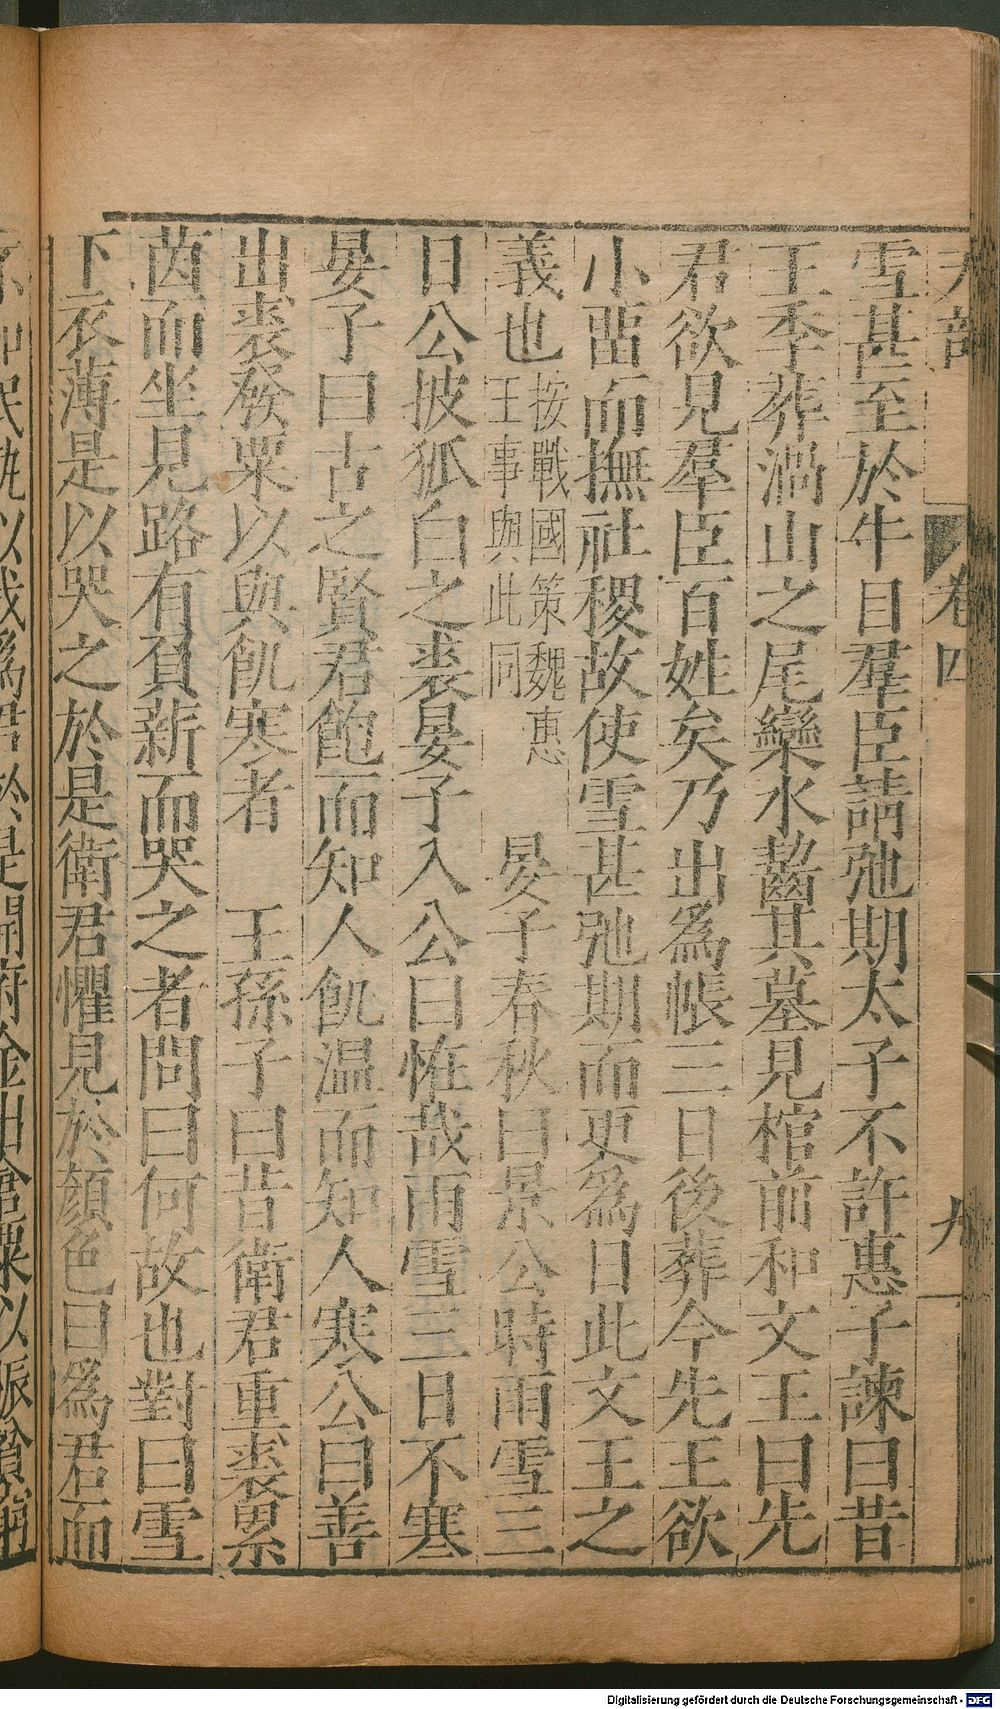 天部
卷四
九
雪甚至於牛目羣臣請弛期太子不許惠子諫曰昔
王季葬渦山之尾欒水齧其墓見棺前和文王曰先
君欲見羣臣百姓矣乃出爲帳三日後葬今先王欲
小畱而撫社稷故使雪甚弛期而更爲日此文王之
義也按戰國策魏惠王事與此同 晏子春秋曰景公時雨雪三
日公披狐白之裘晏子入公曰恠哉雨雪三日不寒
晏子曰古之賢君飽而知人飢温而知人寒公曰善
出裘發粟以與飢寒者 王孫子曰昔衛君重裘累
茵而坐見路有負薪而哭之者問曰何故也對曰雪
下衣薄是以哭之於是衛君懼見於顏色曰爲君而
不知民孰以我爲君於是開府金出倉粟以賑貧窮
Digitalisierung gefördert durch die Deutsche Forschungsgemeinschaft - DFG